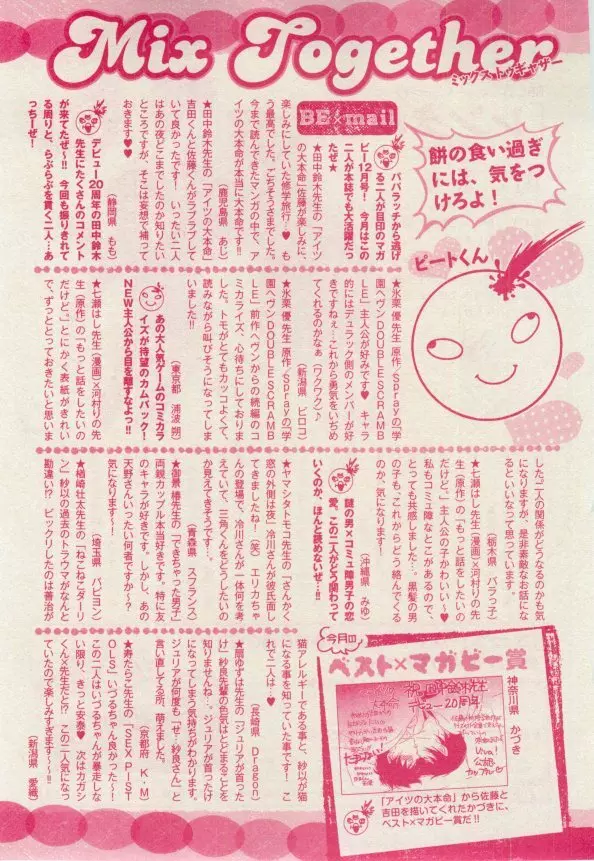 Mix Together
ミックス トゥギャザー
餅の食い過ぎ
には、気をつ
けろよ！
ビートくん
BE×mail
パパラッチから逃げ
る二人が目印のマガ
ビー12月号！ 今月はこの
二人が本誌でも大活躍だっ
たぜ★
★田中鈴木先生の「アイツ
の大本命」に佐藤が楽しみに、
楽しみにしていた修学旅行♥ も
う最高でした。ごちそうさまでした。
今まで読んできたマンガの中で、ア
イツの大本命が本当に大本命です！
（鹿児島県 あじ）
★田中鈴木先生の「アイツの大本命」
吉田くんと佐藤くんがラブラブして
いて良かったです！ いったい二人
はあの夜どこまでしたのか知りたい
ところですが、そこは妄想で補って
おきます♥♥
（静岡県 もも）
デビュー20周年の田中鈴木
先生にたくさんのコメント
が来てたぜ〜!! 今回も振りまわされて
る周りと、らぶらぶを貫く二人…あ
っちーぜ！
★氷栗 優先生 原作／Sprayの「学
園ヘヴンDOUBLE SCRAMB
LE」主人公が好みです♥ キャラ
的にはデュラック側のメンバーが好
きですねぇ…これから勇気をいぢめ
てくれるのかなぁ（ワクワク）♪
（新潟県 ピロコ）
★氷栗 優先生 原作／Sprayの「学
園ヘヴンDOUBLE SCRAMB
LE」前作ヘヴンからの続編のコ
ミカライズ、心待ちにしておりま
した。トモがとてもカッコよくて、
読みながら叫びそうになってしま
いました!!
（東京都 浦波 朔）
あの大人気ゲームのコミカラ
イズが待望のカムバック！
NEW主人公から目を離すなよっ!!
★七瀬はし先生（漫画）×河村りの先
生（原作）の「もっと話をしたいの
だけど。」とにかく表紙がきれい
で、ずっととっておきたいと思いま
した。二人の関係がどうなるのかも気
になりますが、是非素敵なお話にな
るといいなって思っています。
（栃木県 バラっ子）
★七瀬はし先生（漫画）×河村りの先
生（原作）の「もっと話をしたいの
だけど。」主人公の子かわいい〜♥
私もコミュ障なとこがあるので、
とっても共感しました…黒髪の男
の子も、これからどう絡んでくる
のか、気になります！
（沖縄県 みゆ）
謎の男×コミュ障男子の恋
愛、この二人がどう関わって
いくのか、ほんと読めないぜ…!!
★ヤマシタトモコ先生の「さんかく
窓の外側は夜」冷川さんが彼氏面し
てきましたね！（笑） エリカちゃ
んの登場で、冷川さんが一体何を考
えていて、三角くんをどうしたいの
か見えてきそうです…
（青森県 スフランス）
★御景 椿先生の「できちゃった男子」
両親カップル本当好きです。特に友
のキャラが好きです。しかし、あの
天野さんいったい何者ですか〜？
気になります〜！
（埼玉県 パピヨン）
★楢崎壮太先生の「ねこねこダーリ
ン」紗以の過去のトラウマがなんと
勘違い!? ビックリしたのは善治が
猫アレルギーである事と、紗以が猫
になる事を知っていた事です！ こ
れで二人は…♥
（長崎県 Dragon）
★扇ゆずは先生の「ジュリアが首った
け」紗良先輩の色気はとどまることを
知りませんね…。ジュリアが首ったけ
になってしまう気持ちがわかります。
ジュリアが何度も「せ…紗良さん」と
言い直してる所、萌えました。
（京都府 K・M）
★寿たらこ先生の「SEX PIST
OLS」いづるちゃん良かった〜！
この二人はいづるちゃんが暴走しな
い限り、きっと安泰♥ 次はカガシ
くん×先生だと!? この二人気になっ
ていたので楽しみすぎます〜!!
（新潟県 愛織）
今月の
ベスト×マガビー賞
神奈川県 かづき
祝 田中鈴木先生
デビュー20周年
Viva!
公始
カップル♥
「アイツの大本命」から佐藤と
吉田を描いてくれたかづきに、
ベスト×マガビー賞だ!!